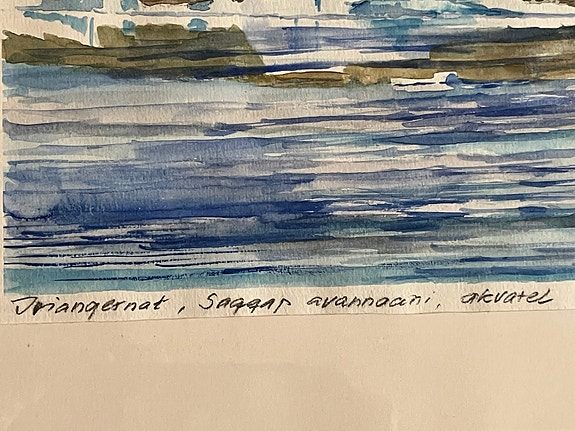 Iviangernat, Saqqap avannaani, akvarel